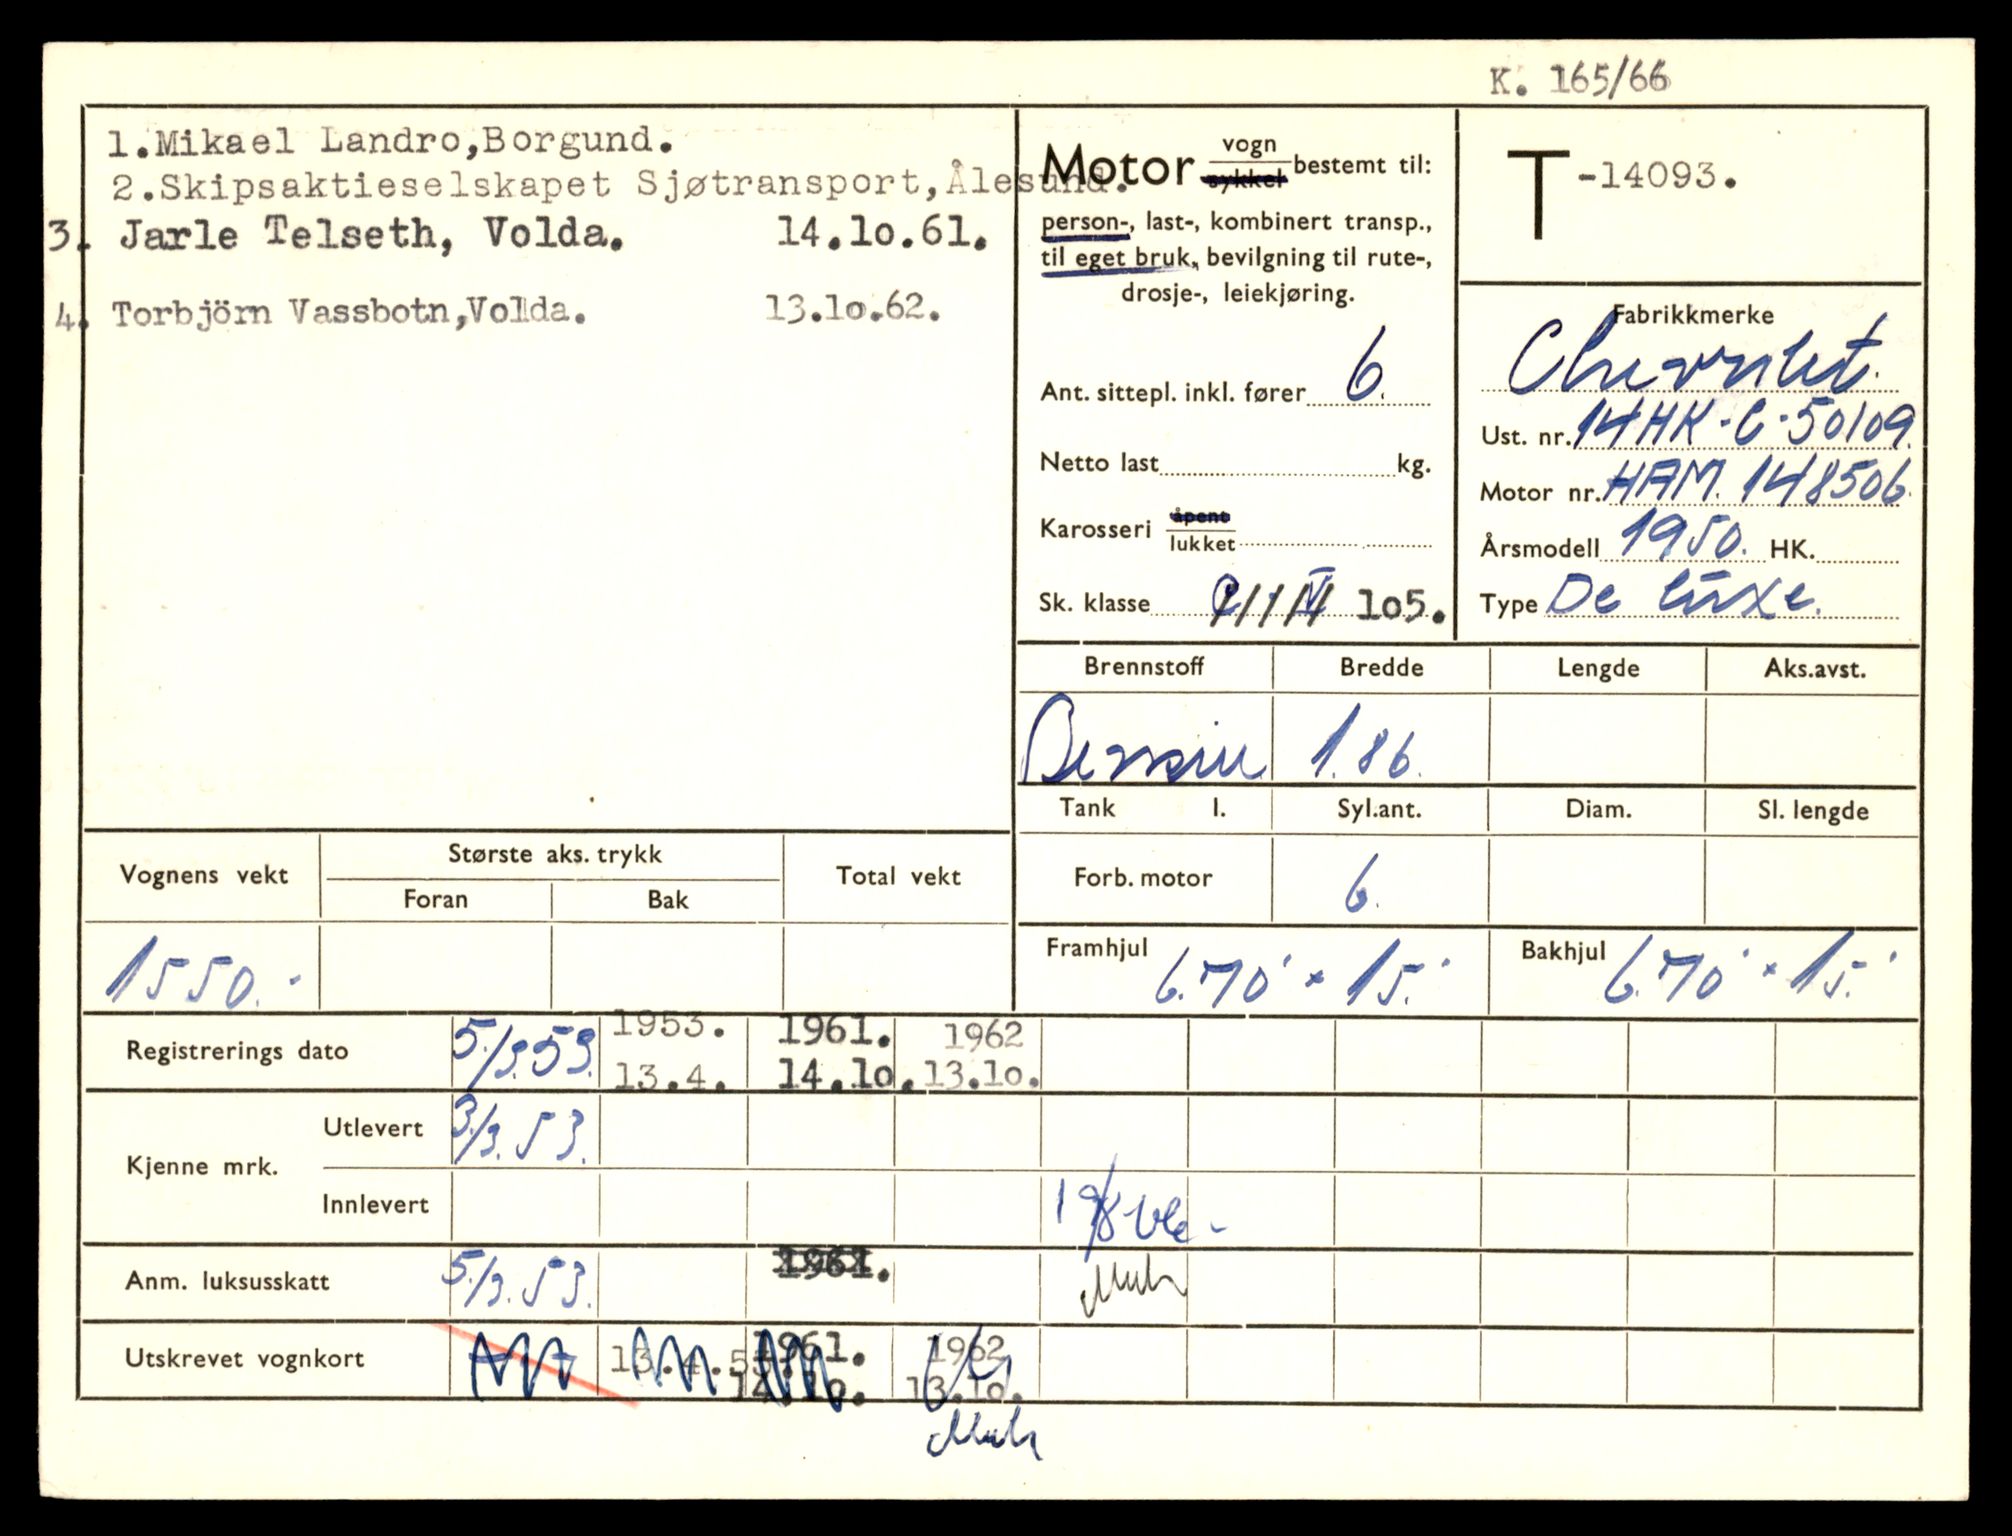 K. 165/66
1.Mikael Landro,Borgund.
2.Skipsaktieselskapet Sjøtransport,Ålesund.
3. Jarle Telseth, Volda. 14.10.61.
4. Torbjörn Vassbotn,Volda. 13.10.62.
Motor vogn sykkel bestemt til:
person-, last-, kombinert transp.,
til eget bruk, bevilgning til rute-,
drosje-, leiekjøring.
Ant. sittepl. inkl. fører 6.
Netto last kg.
Karosseri åpent lukket
Sk. klasse 105.
T-14093.
Fabrikkmerke
Chevrolet.
Ust. nr. 14HK-C-50109.
Motor nr. HAM. 148506.
Årsmodell 1950. HK.
Type De luxe.
Brennstoff Bredde Lengde Aks.avst.
Bensin 1.86.
Tank l. Syl.ant. Diam. Sl. lengde
Forb. motor 6.
Framhjul 6.70" × 15." Bakhjul 6.70" × 15."
Vognens vekt Største aks. trykk Total vekt
Foran Bak
1550.-
Registrerings dato 5/3.53. 1953. 13.4. 1961. 14.10. 1962 13.10.
Kjenne mrk.
Utlevert 3/3.53.
Innlevert
Anm. luksusskatt 5/3.53. 1961.
Utskrevet vognkort 13.4.5 1961. 14.10. 1962 13.10.